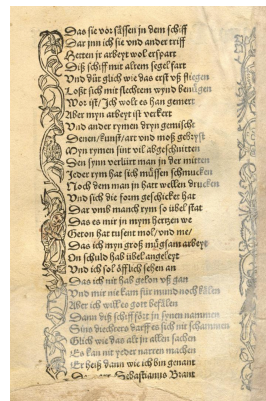 Das sie vor sässen jn dem schiff
Dar jnn ich sie vnd ander triff
Hetten jr arbeyt wol erspart
Diß schiff mit altem segel fart
Vnd düt glich wie das erst vß fliegen
Loßt sich mit schlechtem wynd benügen
Wor ist / Jch wolt es han gemert
Aber myn arbeyt ist verkert
Vnd ander rymen dryn gemischt
Denen / kunst / art vnd moß gebryst
Myn rymen sint vil abgeschnitten
Den synn verlürt man jn der mitten
Jeder rym hat sich müssen schmucken
Noch dem man jn hatt wellen drucken
Vnd sich die form geschicket hat
Dar vmb manch rym so übel stat
Das es mir jn mym hertzen we
Geton hat tusent mol / vnd me /
Das ich myn groß müğsam arbeyt
On schuld hab übel angeleyt
Vnd ich sol öfflich sehen an
Das ich nit hab gelon vß gan
Vnd mir nie kam für mund noch kälen
Aber ich will es gott befälen
Dann diß schiff förtz jn synen nammen
Sins diechters darff es sich nit schammen
Glich wie das alt jn allen sachen
Es kan nit yeder narren machen
Er heiß dann wie ich bin genant
Sebastianus Brant